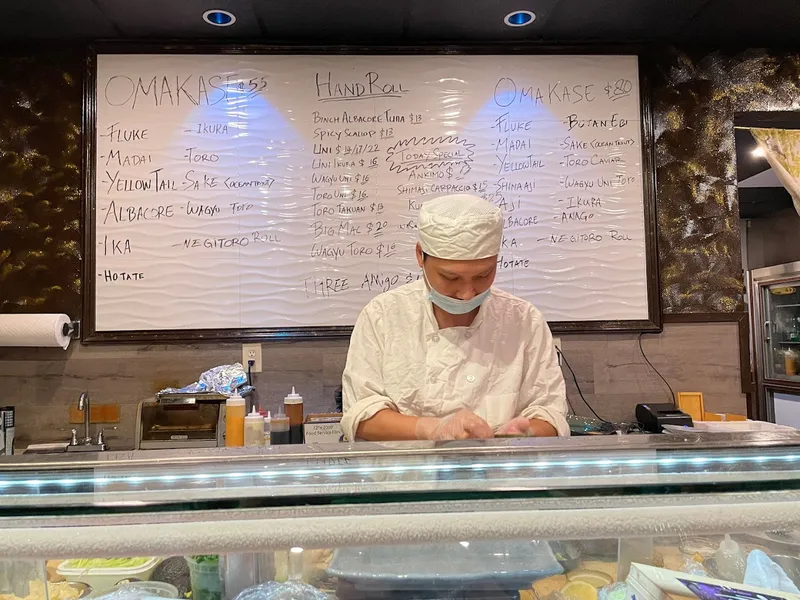 OMAKASE $55
-FLUKE -IKURA
-MADAI -TORO
-YELLOWTAIL -SAKE (OCEAN TROUT)
-ALBACORE -WAGYU TORO
-IKA -NEGITORO ROLL
-HOTATE
HAND ROLL
BINCH ALBACORE TUNA $13
SPICY SCALLOP $13
UNI $ /17/22
UNI IKURA $16
WAGYU UNI $16
TORO UNI $16
TORO TAKUAN $13
BIG MAC $20
WAGYU TORO $
THREE AMIGO $
TODAY SPECIAL
ANKIMO $
SHIMAJI CARPACCIO $15
OMAKASE $80
-FLUKE -BOTAN EBI
-MADAI -SAKE (OCEAN TROUT)
-YELLOWTAIL -TORO CAVIAR
-SHIMAAJI -WAGYU UNI TORO
-AJI -IKURA
ALBACORE -ANAGO
KA -NEGITORO ROLL
HOTATE